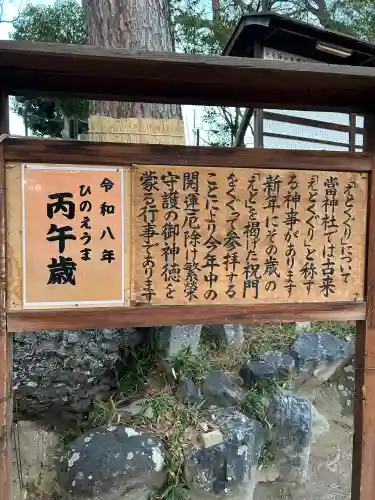 「えとぐり」について
當神社では古来
「えとぐり」と称す
る神事があります
新年にその歳の
「えと」を掲げた祝門
をくぐって参拝する
ことにより今年中の
開運厄除け商売繁栄
守護の御神徳を
蒙る行事であります
令和八年
ひのえうま
丙午歳